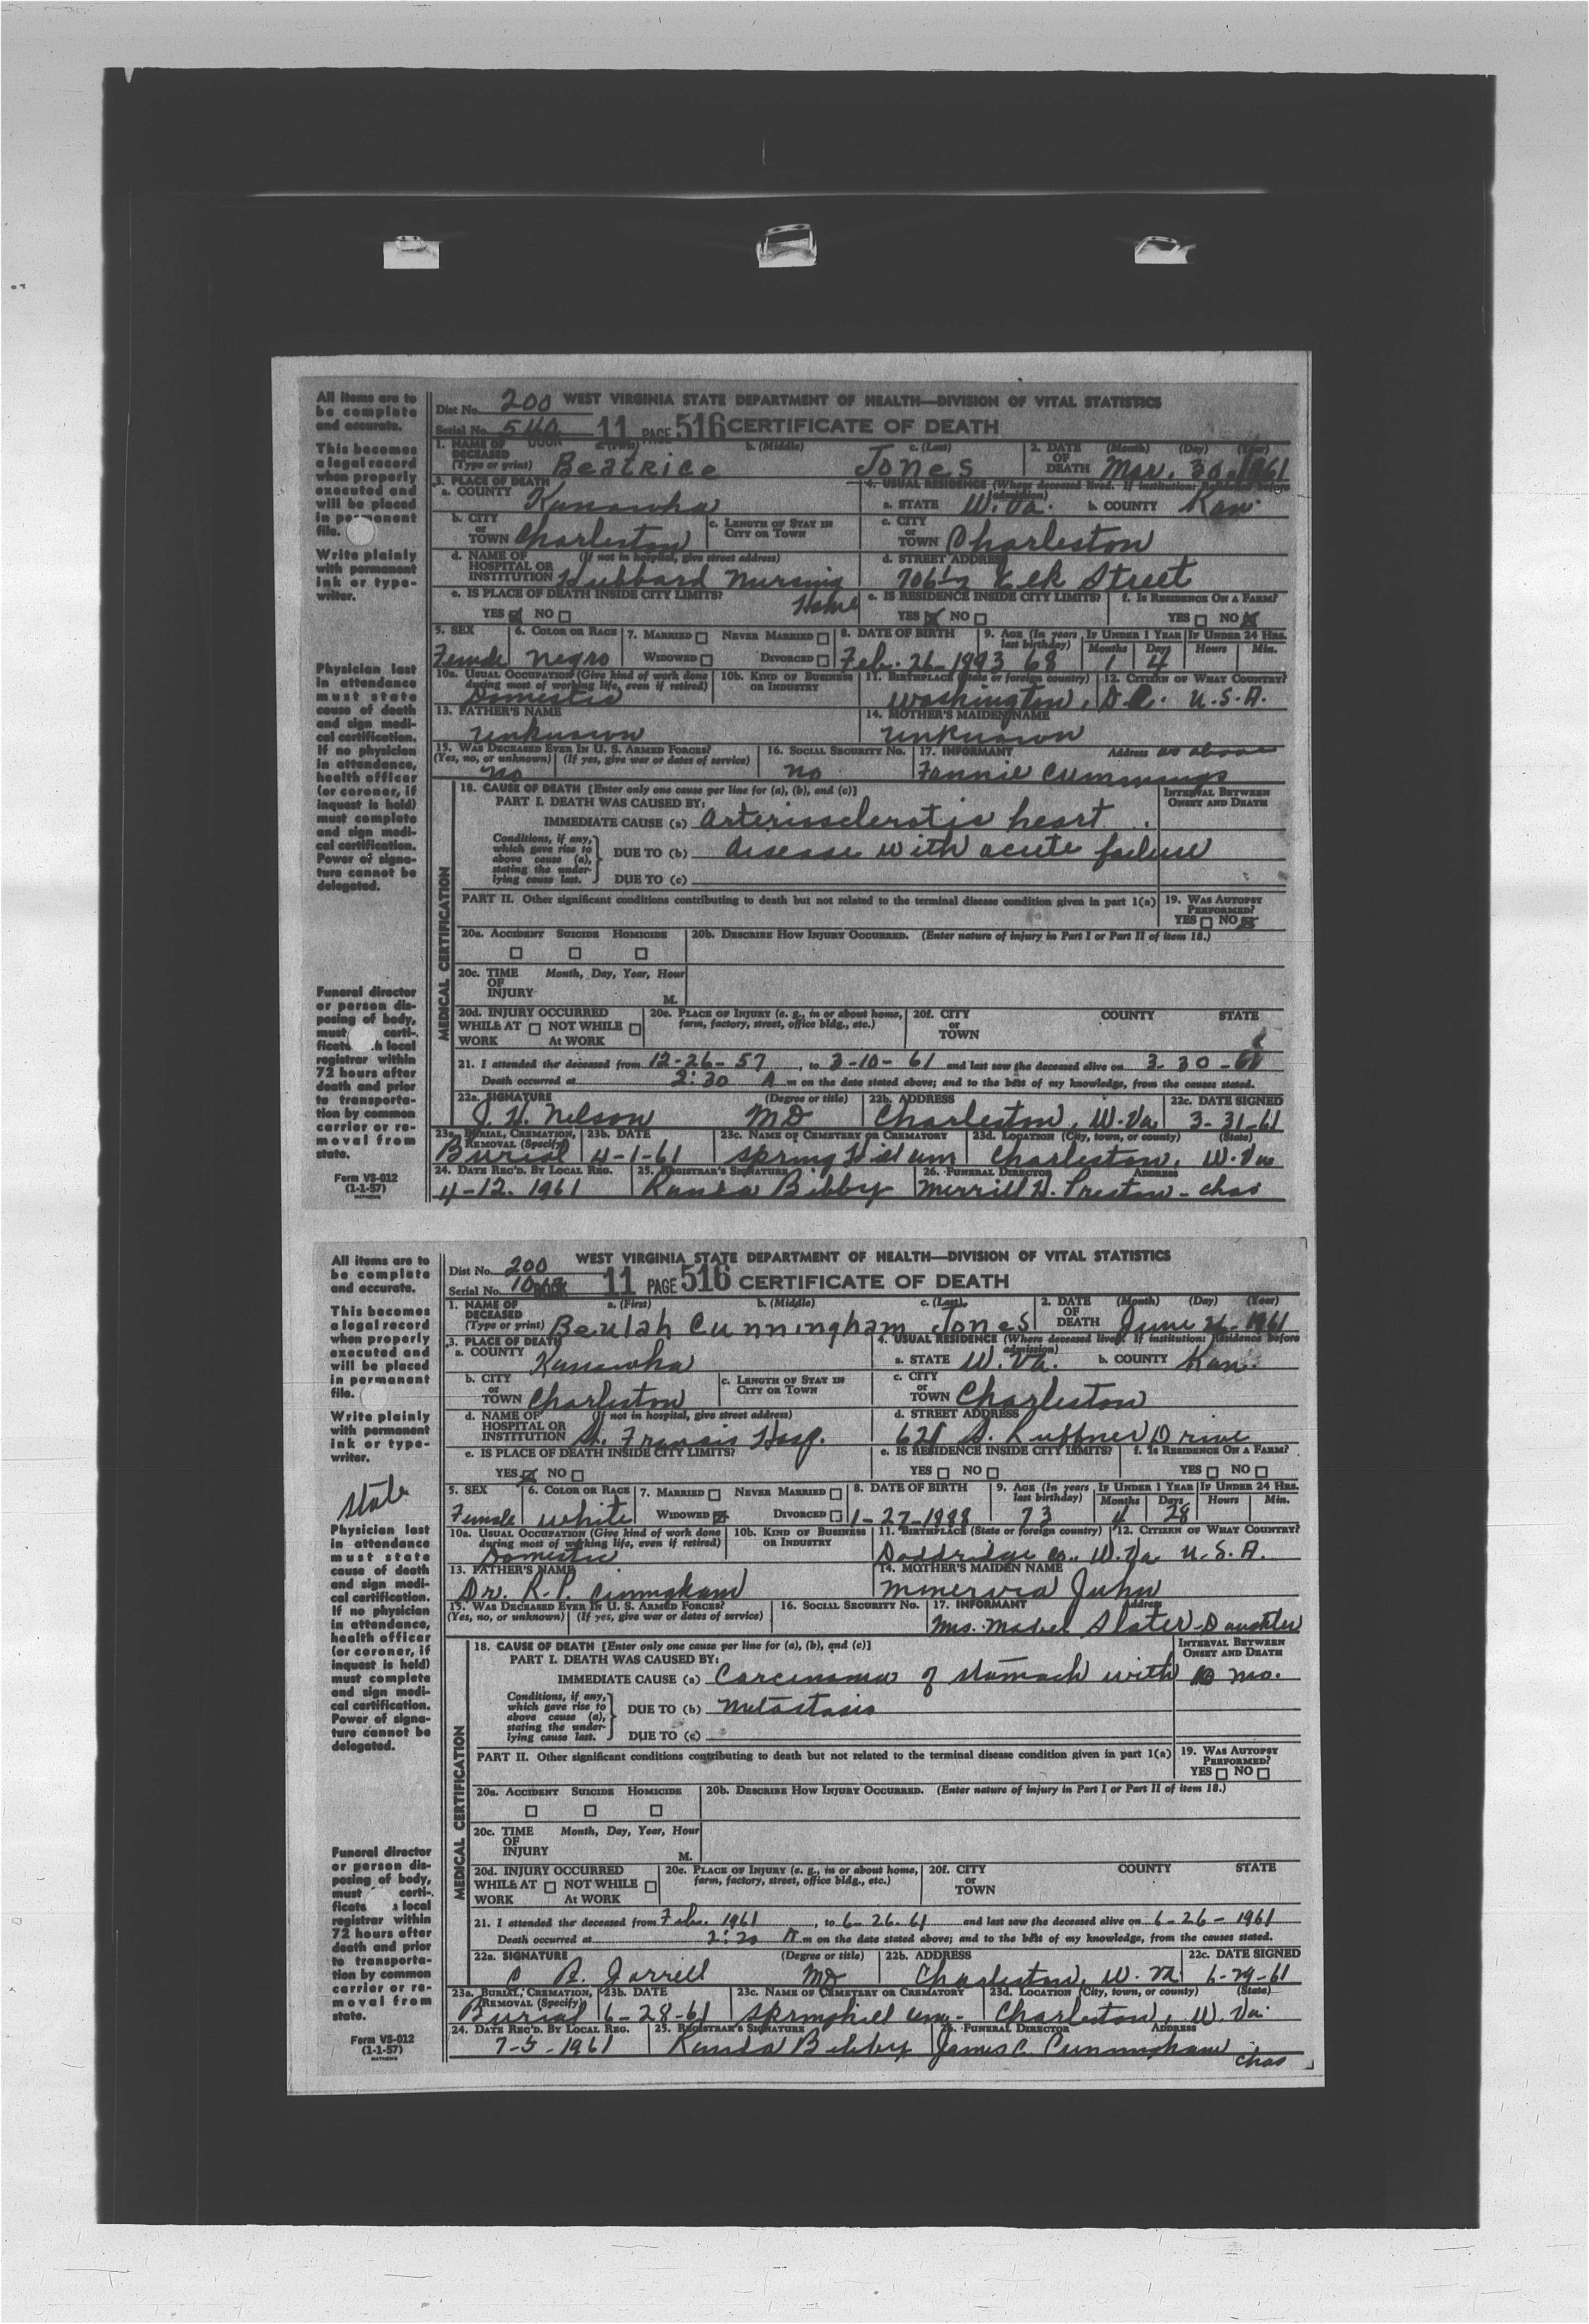 All items are to be complete and accurate.
This becomes a legal record when properly executed and will be placed in permanent file.
Write plainly with permanent ink or type-writer.
Physician last in attendance must state cause of death and sign medical certification. If no physician in attendance, health officer (or coroner, if inquest is held) must complete and sign medical certification. Power of signature cannot be delegated.
Funeral director or person disposing of body, must certi-ficate h local registrar within 72 hours after death and prior to transportation by common carrier or removal from state.
Form VS-012
(1-1-57)
Dist No. 200 WEST VIRGINIA STATE DEPARTMENT OF HEALTH—DIVISION OF VITAL STATISTICS
Serial No. 11 PAGE 516 CERTIFICATE OF DEATH
1. NAME OF DECEASED (Type or print) b. (Middle) c. (Last) 2. DATE OF DEATH (Month) (Day) (Year)
Beatrice Jones Mar. 30 - 1961
3. PLACE OF DEATH 4. USUAL RESIDENCE (Where deceased lived. If institution: Residence before admission)
a. COUNTY Kanawha a. STATE W. Va. b. COUNTY Kan.
b. CITY or TOWN Charleston c. LENGTH OF STAY IN CITY OR TOWN c. CITY or TOWN Charleston
d. NAME OF HOSPITAL OR INSTITUTION (If not in hospital, give street address) Hubbard Nursing Home d. STREET ADDRESS 706½ Elk Street
e. IS PLACE OF DEATH INSIDE CITY LIMITS? e. IS RESIDENCE INSIDE CITY LIMITS? f. IS RESIDENCE ON A FARM?
YES NO YES NO YES NO
5. SEX 6. COLOR OR RACE 7. MARRIED NEVER MARRIED 8. DATE OF BIRTH 9. AGE (In years last birthday) IF UNDER 1 YEAR IF UNDER 24 HRS.
WIDOWED DIVORCED Months Days Hours Min.
Female Negro Feb. 26-1893 68 1 4
10a. USUAL OCCUPATION (Give kind of work done during most of working life, even if retired) 10b. KIND OF BUSINESS OR INDUSTRY 11. BIRTHPLACE (State or foreign country) 12. CITIZEN OF WHAT COUNTRY?
Domestic Washington, D.C. U.S.A.
13. FATHER'S NAME 14. MOTHER'S MAIDEN NAME
Unknown Unknown
15. WAS DECEASED EVER IN U. S. ARMED FORCES? 16. SOCIAL SECURITY No. 17. INFORMANT Address as above
(Yes, no, or unknown) (If yes, give war or dates of service)
no no Fannie Cummings
18. CAUSE OF DEATH [Enter only one cause per line for (a), (b), and (c)] INTERVAL BETWEEN ONSET AND DEATH
PART I. DEATH WAS CAUSED BY:
IMMEDIATE CAUSE (a) Arteriosclerotic heart
Conditions, if any, which gave rise to above cause (a), stating the underlying cause last.
DUE TO (b) disease with acute failure
DUE TO (c)
PART II. Other significant conditions contributing to death but not related to the terminal disease condition given in part 1(a) 19. WAS AUTOPSY PERFORMED? YES NO
20a. ACCIDENT SUICIDE HOMICIDE 20b. DESCRIBE HOW INJURY OCCURRED. (Enter nature of injury in Part I or Part II of item 18.)
20c. TIME OF INJURY Month, Day, Year, Hour M.
20d. INJURY OCCURRED 20e. PLACE OF INJURY (e. g., in or about home, farm, factory, street, office bldg., etc.) 20f. CITY or TOWN COUNTY STATE
WHILE AT WORK NOT WHILE At WORK
MEDICAL CERTIFICATION
21. I attended the deceased from 12-26-57, to 3-10-61 and last saw the deceased alive on 3-30-61
Death occurred at 2:30 A m on the date stated above; and to the best of my knowledge, from the causes stated.
22a. SIGNATURE (Degree or title) 22b. ADDRESS 22c. DATE SIGNED
J. H. Nelson MD Charleston, W. Va. 3-31-61
23a. BURIAL, CREMATION, REMOVAL (Specify) 23b. DATE 23c. NAME OF CEMETERY OR CREMATORY 23d. LOCATION (City, town, or county) (State)
Burial 4-1-61 Spring Hill Cem Charleston, W. Va
24. DATE REC'D. BY LOCAL REG. 25. REGISTRAR'S SIGNATURE 26. FUNERAL DIRECTOR ADDRESS
4-12. 1961 Bibby Merrill H. Preston - Chas
All items are to be complete and accurate.
This becomes a legal record when properly executed and will be placed in permanent file.
Write plainly with permanent ink or type-writer.
State
Physician last in attendance must state cause of death and sign medical certification. If no physician in attendance, health officer (or coroner, if inquest is held) must complete and sign medical certification. Power of signature cannot be delegated.
Funeral director or person disposing of body, must certi-ficate local registrar within 72 hours after death and prior to transportation by common carrier or removal from state.
Form VS-012
(1-1-57)
Dist No. 200 WEST VIRGINIA STATE DEPARTMENT OF HEALTH—DIVISION OF VITAL STATISTICS
Serial No. 11 PAGE 516 CERTIFICATE OF DEATH
1. NAME OF DECEASED (Type or print) a. (First) b. (Middle) c. (Last) 2. DATE OF DEATH (Month) (Day) (Year)
Beulah Cunningham Jones June 26-1961
3. PLACE OF DEATH 4. USUAL RESIDENCE (Where deceased lived. If institution: Residence before admission)
a. COUNTY Kanawha a. STATE W. Va. b. COUNTY Kan.
b. CITY or TOWN Charleston c. LENGTH OF STAY IN CITY OR TOWN c. CITY or TOWN Charleston
d. NAME OF HOSPITAL OR INSTITUTION (If not in hospital, give street address) St. Francis Hosp. d. STREET ADDRESS S. Ruffner Drive
e. IS PLACE OF DEATH INSIDE CITY LIMITS? e. IS RESIDENCE INSIDE CITY LIMITS? f. IS RESIDENCE ON A FARM?
YES NO YES NO YES NO
5. SEX 6. COLOR OR RACE 7. MARRIED NEVER MARRIED 8. DATE OF BIRTH 9. AGE (In years last birthday) IF UNDER 1 YEAR IF UNDER 24 HRS.
WIDOWED DIVORCED Months Days Hours Min.
Female White 1-27-1888 73 4 28
10a. USUAL OCCUPATION (Give kind of work done during most of working life, even if retired) 10b. KIND OF BUSINESS OR INDUSTRY 11. BIRTHPLACE (State or foreign country) 12. CITIZEN OF WHAT COUNTRY?
Domestic Doddridge Co., W. Va. U.S.A.
13. FATHER'S NAME 14. MOTHER'S MAIDEN NAME
Dr. R. P. Minervia
15. WAS DECEASED EVER IN U. S. ARMED FORCES? 16. SOCIAL SECURITY No. 17. INFORMANT Address
(Yes, no, or unknown) (If yes, give war or dates of service)
Mrs. Mabel Slater-Daughter
18. CAUSE OF DEATH [Enter only one cause per line for (a), (b), and (c)] INTERVAL BETWEEN ONSET AND DEATH
PART I. DEATH WAS CAUSED BY:
IMMEDIATE CAUSE (a) Carcinoma of stomach with mo.
Conditions, if any, which gave rise to above cause (a), stating the underlying cause last.
DUE TO (b) Metastasis
DUE TO (c)
PART II. Other significant conditions contributing to death but not related to the terminal disease condition given in part 1(a) 19. WAS AUTOPSY PERFORMED? YES NO
20a. ACCIDENT SUICIDE HOMICIDE 20b. DESCRIBE HOW INJURY OCCURRED. (Enter nature of injury in Part I or Part II of item 18.)
20c. TIME OF INJURY Month, Day, Year, Hour M.
20d. INJURY OCCURRED 20e. PLACE OF INJURY (e. g., in or about home, farm, factory, street, office bldg., etc.) 20f. CITY or TOWN COUNTY STATE
WHILE AT WORK NOT WHILE At WORK
MEDICAL CERTIFICATION
21. I attended the deceased from Feb. 1961, to 6-26-61 and last saw the deceased alive on 6-26-1961
Death occurred at 2:20 m on the date stated above; and to the best of my knowledge, from the causes stated.
22a. SIGNATURE (Degree or title) 22b. ADDRESS 22c. DATE SIGNED
A. Jarrell MD Charleston, W. Va 6-29-61
23a. BURIAL, CREMATION, REMOVAL (Specify) 23b. DATE 23c. NAME OF CEMETERY OR CREMATORY 23d. LOCATION (City, town, or county) (State)
Burial 6-28-61 Springhill Cem. Charleston, W. Va.
24. DATE REC'D. BY LOCAL REG. 25. REGISTRAR'S SIGNATURE 26. FUNERAL DIRECTOR ADDRESS
7-5-1961 Bibby James C. Cunningham Chas